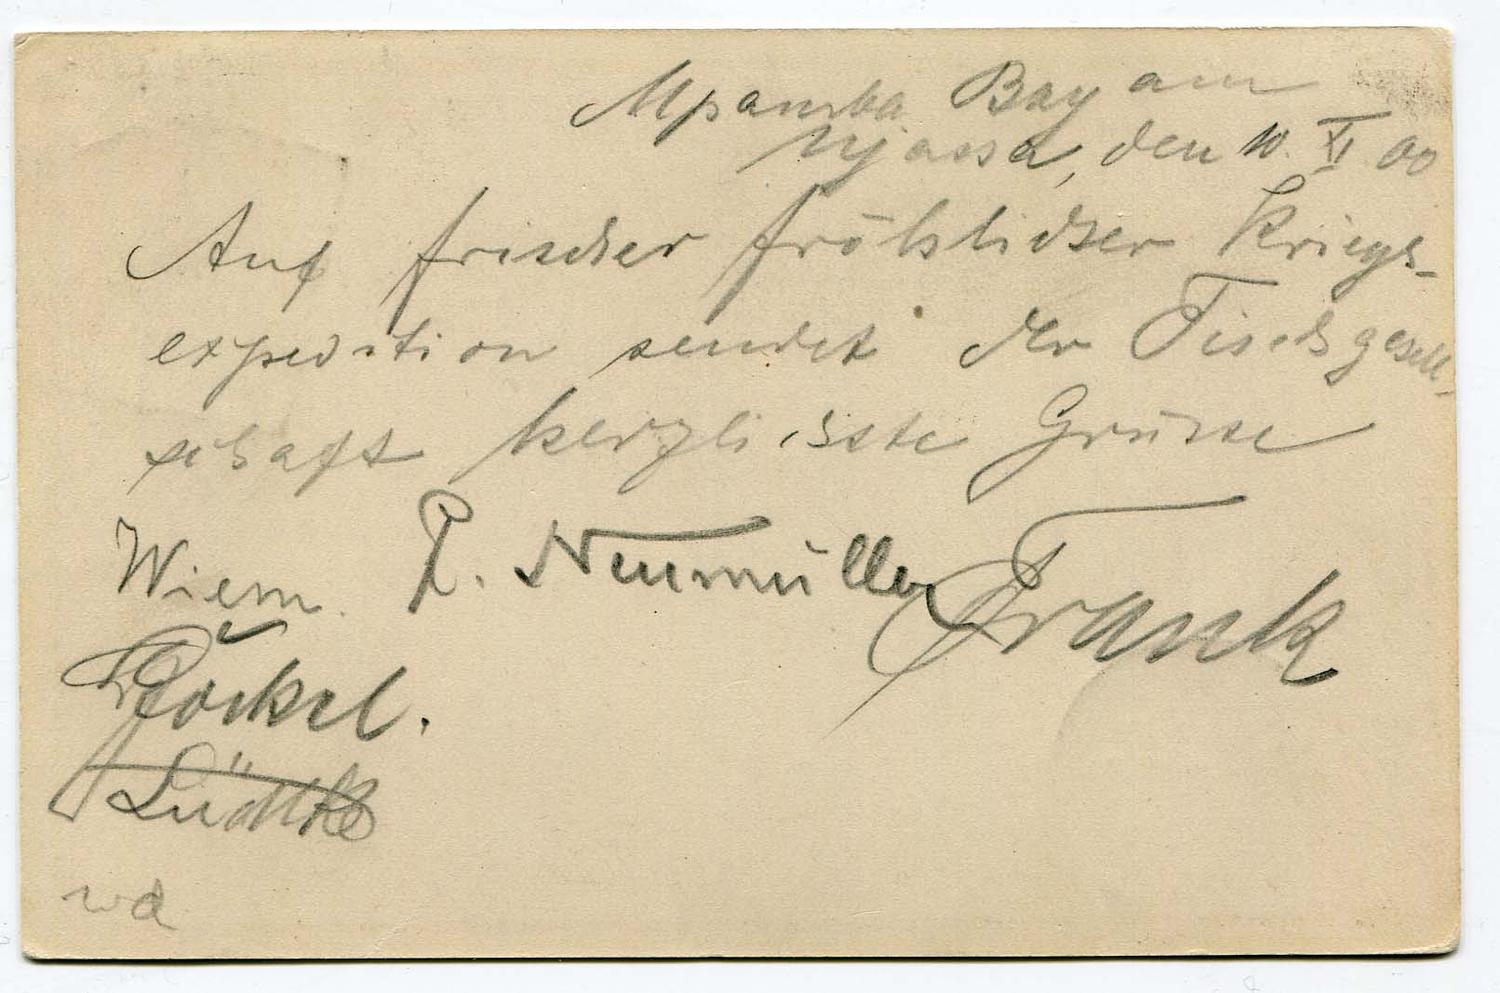 Mpamba Bay am
Njassa, den 10. XI 00
Auf frischer fröhlicher Kriegs-
expedition sendet der Tischgesell-
schaft herzlichste Grüsse
Wiem. R. Neumüller Frank
Röckel.
Lüdtke